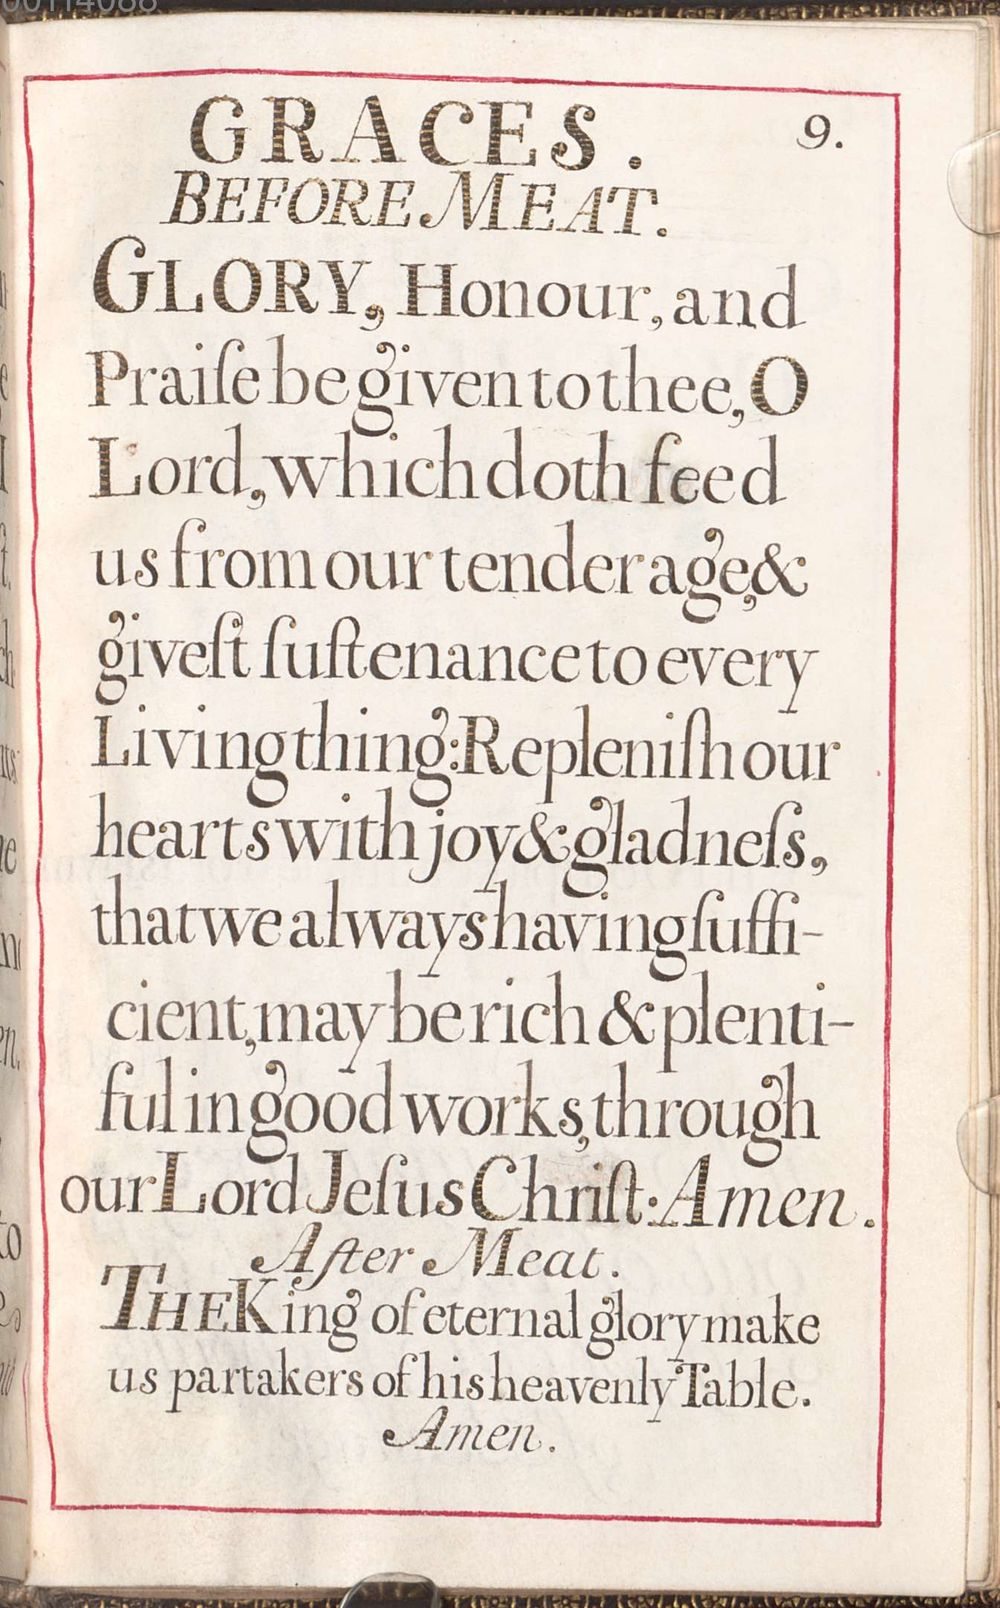 GRACES.
9.
BEFORE MEAT.
GLORY, Honour, and
Praiſe be given to thee, O
Lord, which doth feed
us from our tender age, &
giveſt ſuſtenance to every
Living thing: Repleniſh our
hearts with joy & gladneſs,
that we always having ſuffi-
cient, may be rich & plenti-
ful in good works, through
our Lord Jeſus Chriſt: Amen.
After Meat.
THE King of eternal glory make
us partakers of his heavenly Table.
Amen.